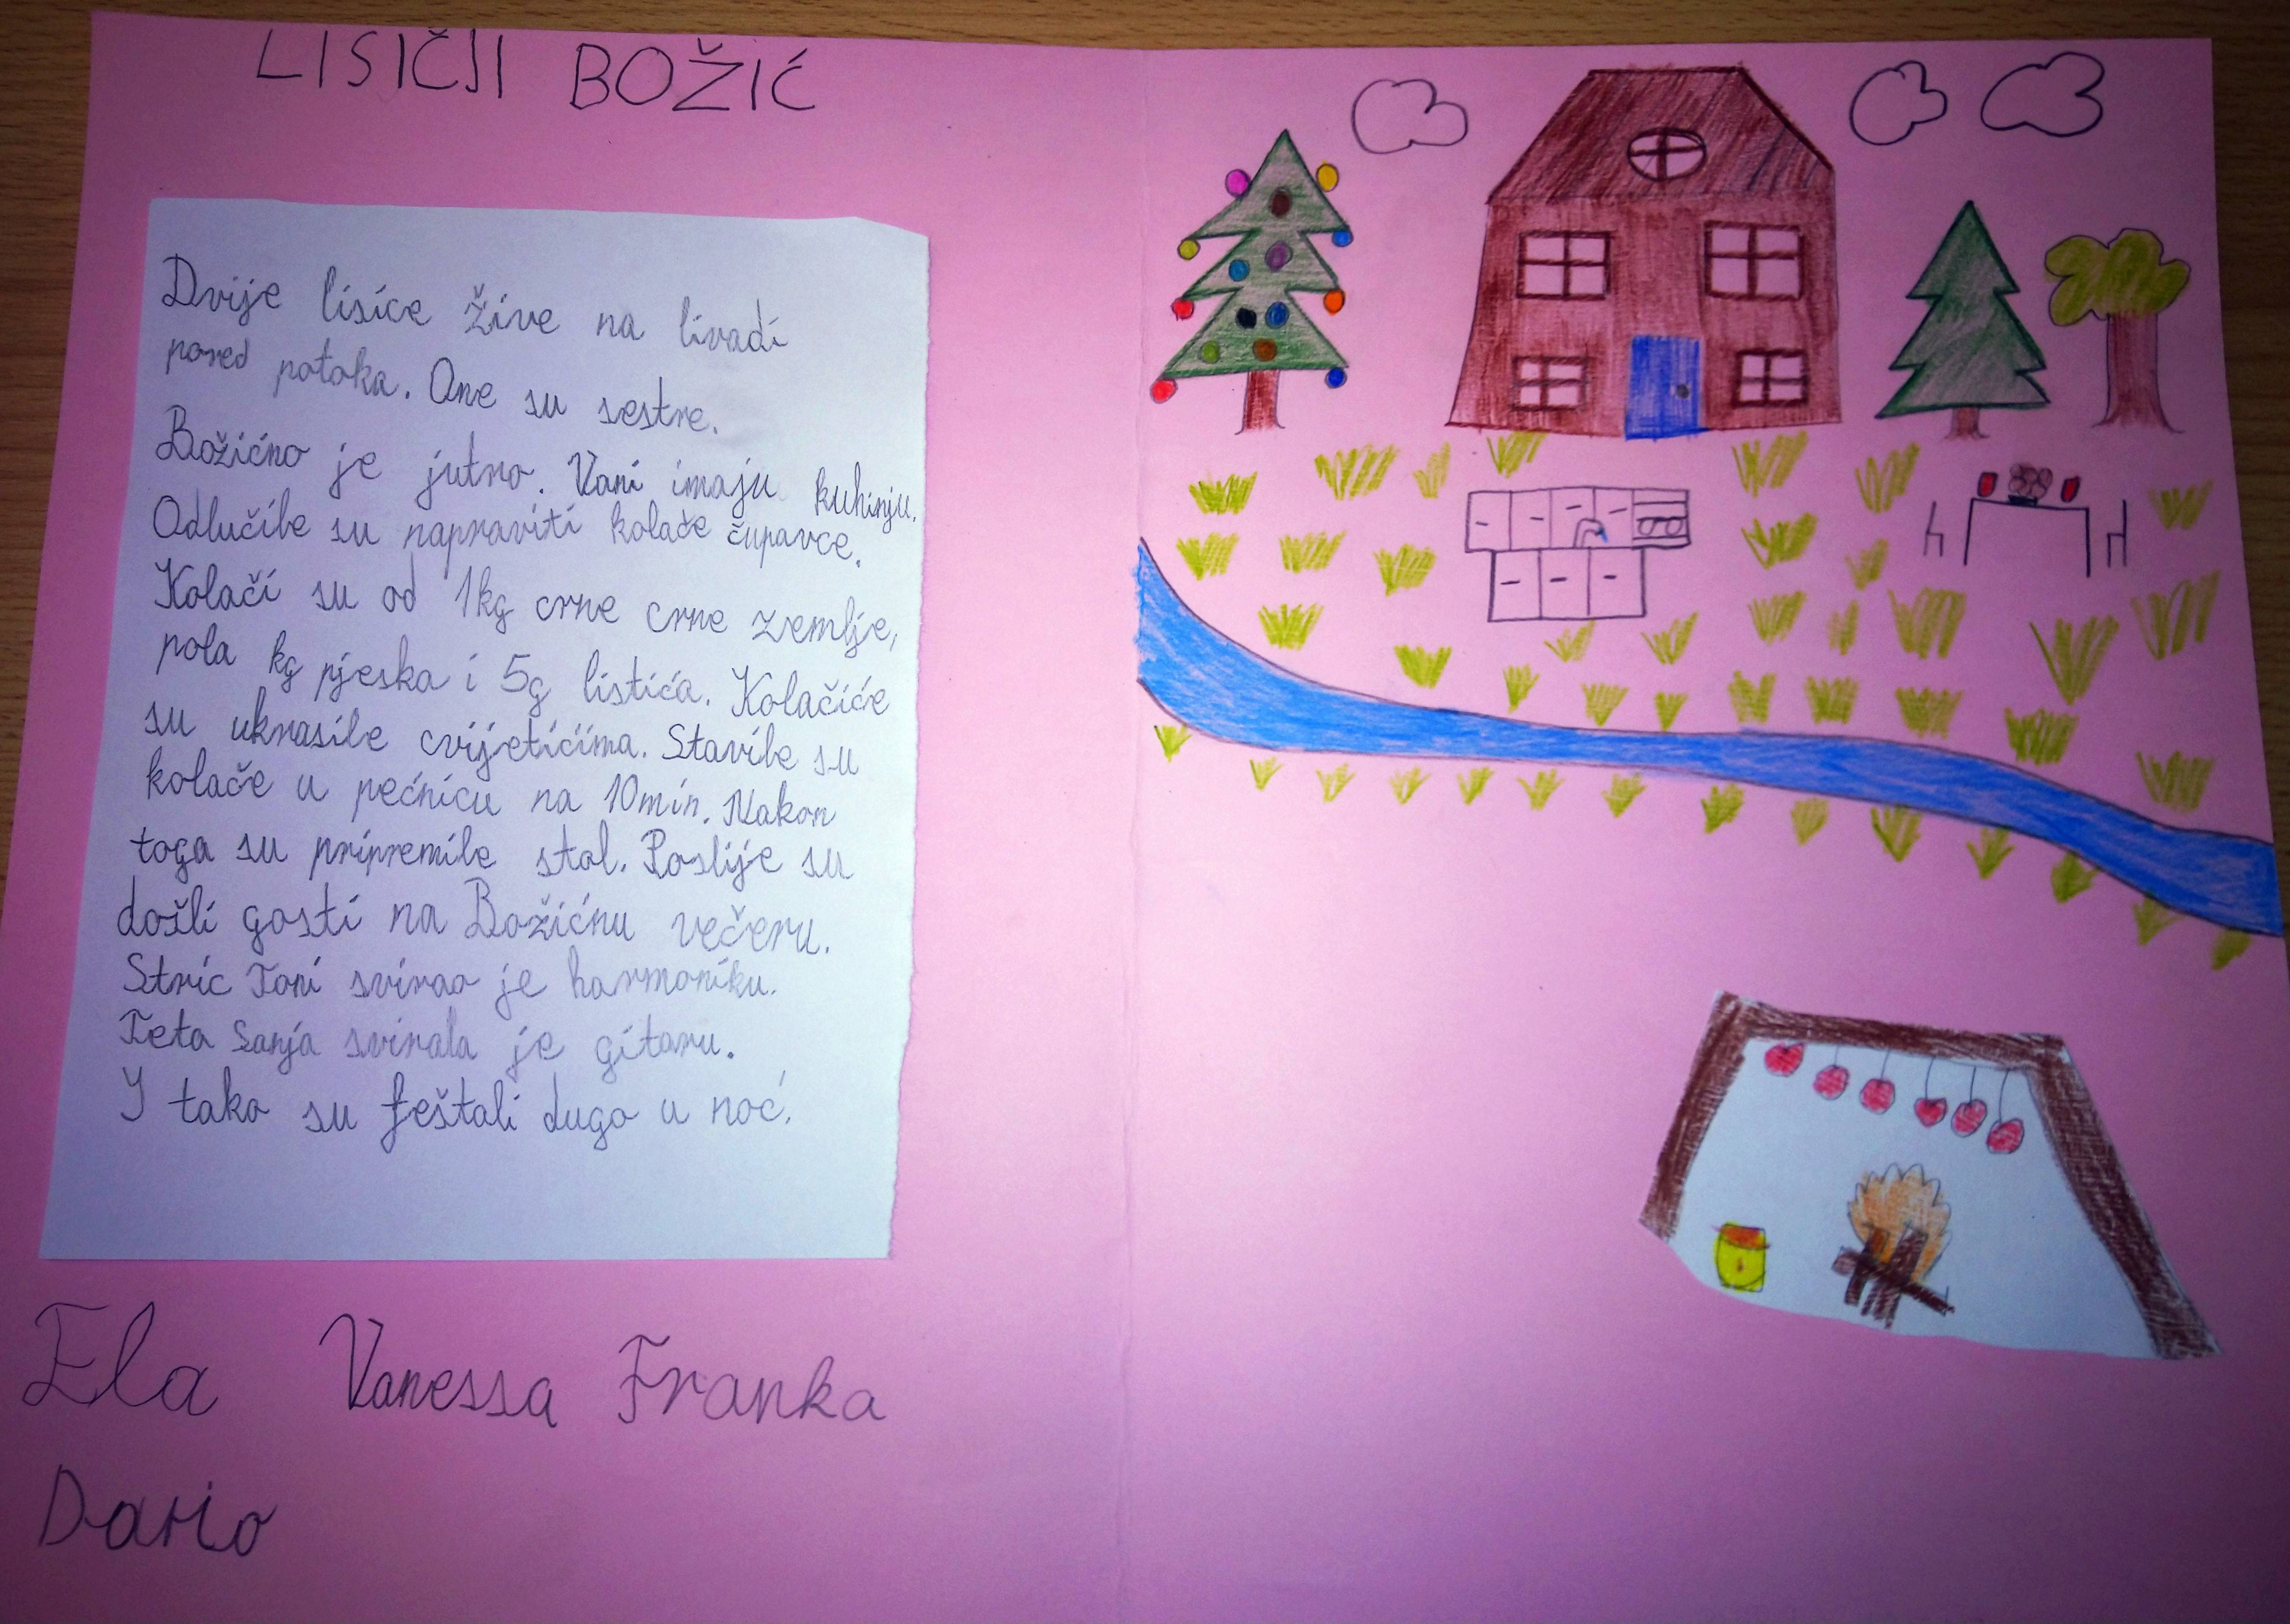 LISIČJI BOŽIĆ
Dvije lisice žive na livadi
pored potoka. One su sestre.
Božićno je jutro. Vani imaju kuhinju.
Odlučile su napraviti kolače čupavce.
Kolači su od 1kg crne crne zemlje,
pola kg pjeska i 5g listića. Kolačiće
su ukrasile cvijetićima. Stavile su
kolače u pećnicu na 10min. Nakon
toga su pripremile stol. Poslije su
došli gosti na Božićnu večeru.
Stric Toni svirao je harmoniku.
Teta Sanja svirala je gitaru.
I tako su feštali dugo u noć.
Ela Vanessa Franka
Dario